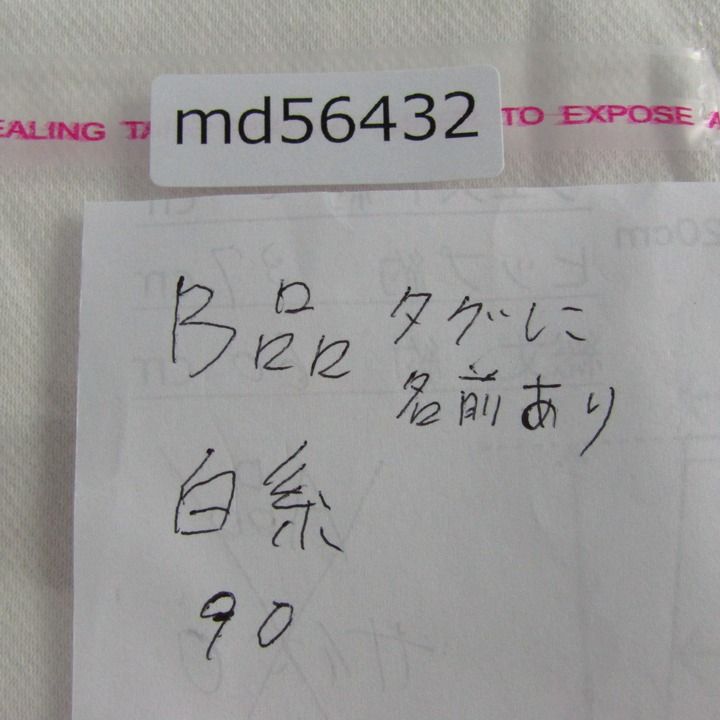 EALING TA
md56432
TO EXPOSE A
B品 タグに
名前あり
白系
90